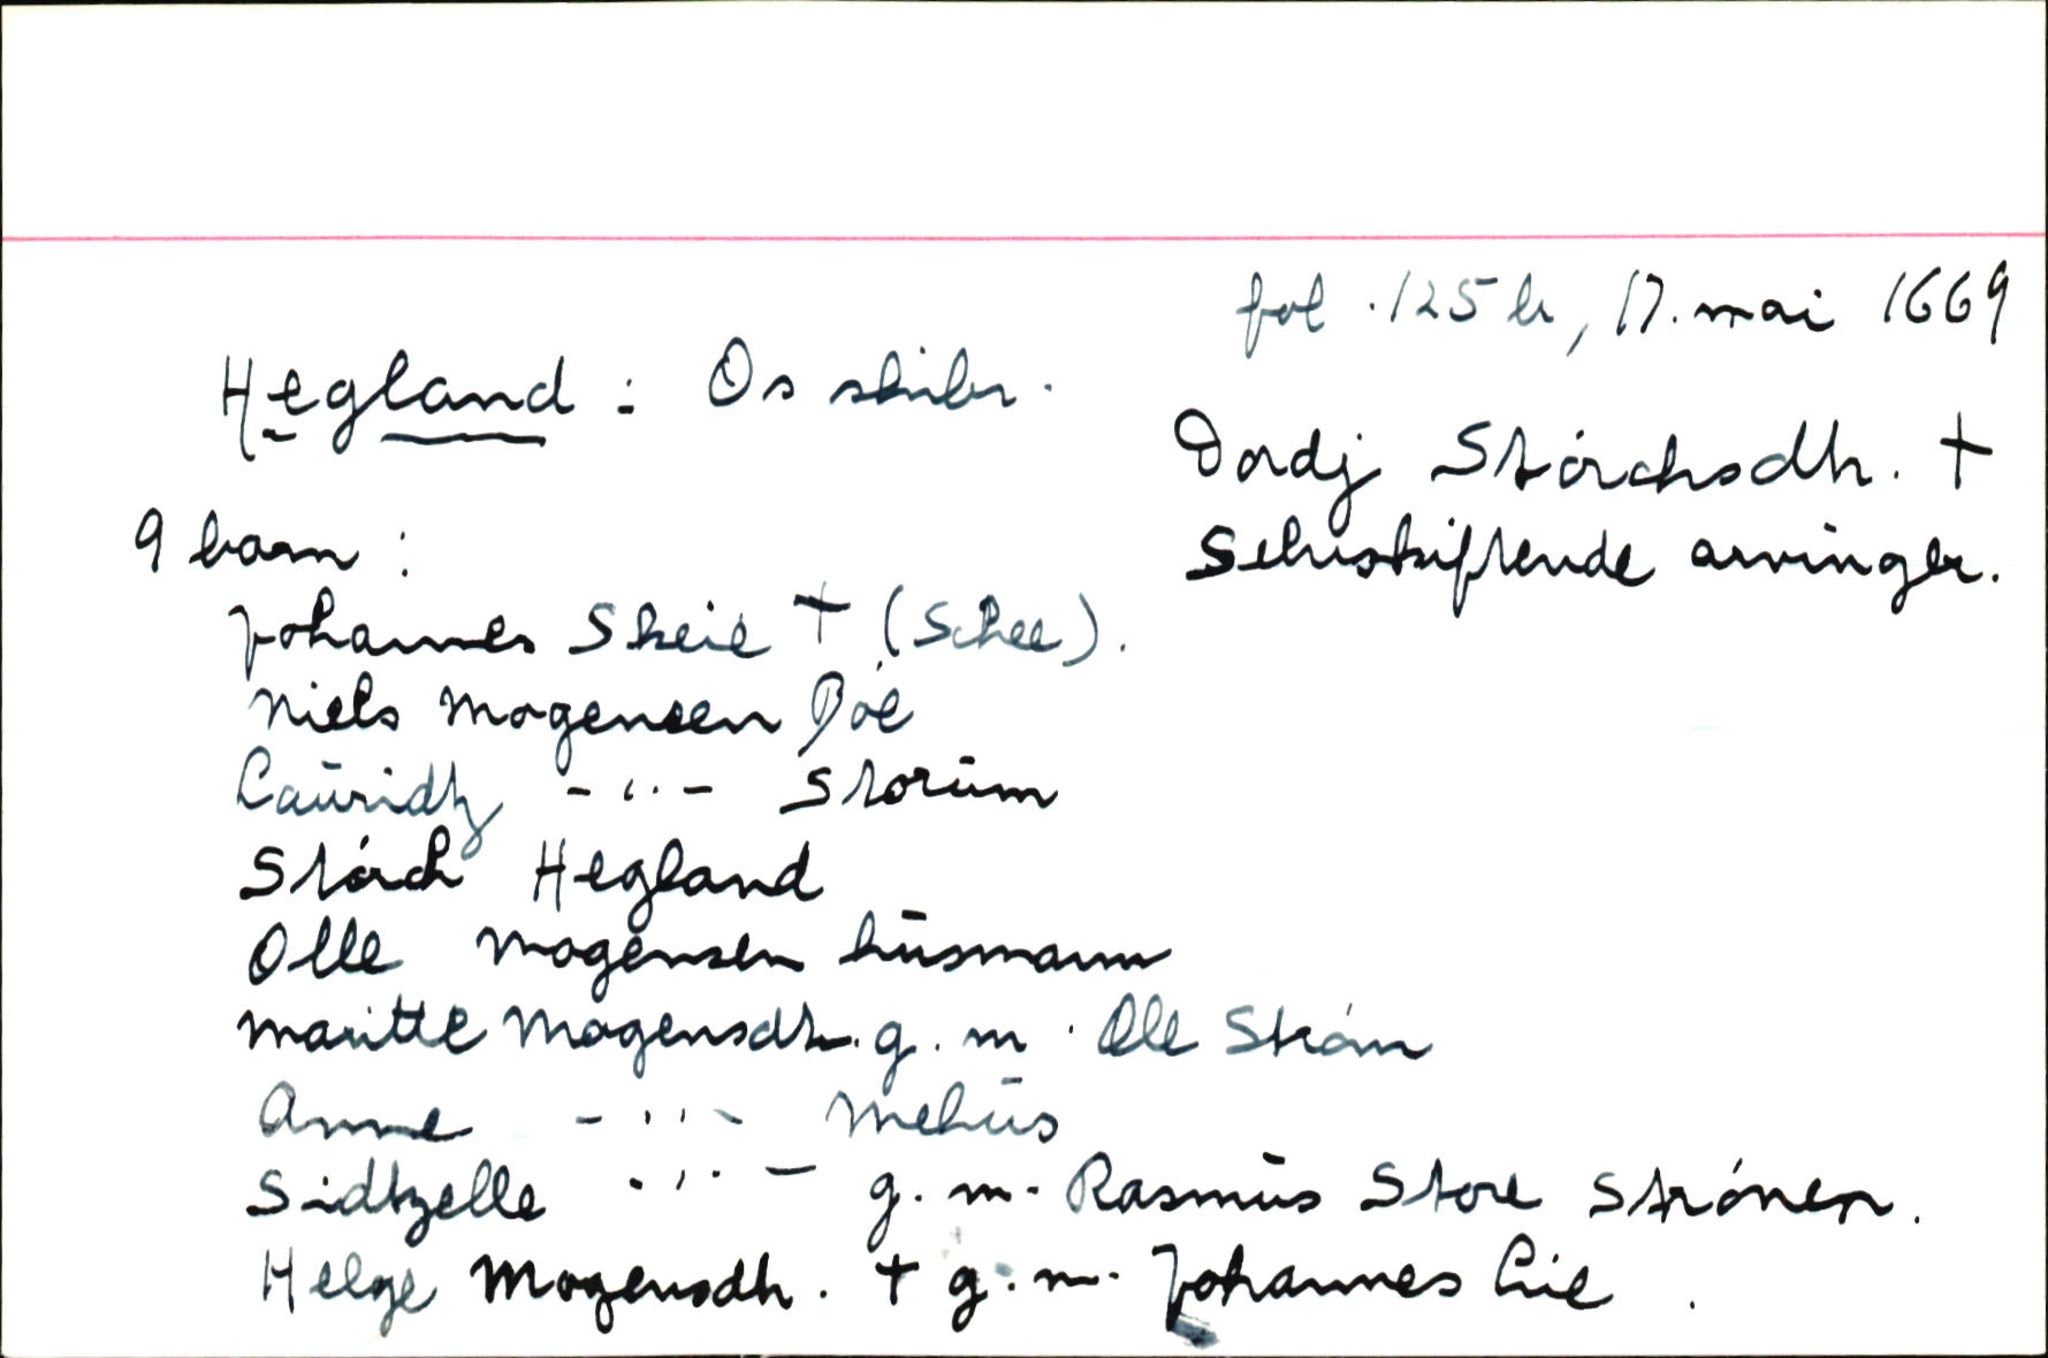 fol. 125 b, 17. mai 1669
Hegland : Os skibr.
Dordj Störchsdtr. +
Selvskiftende arvinger.
9 barn :
Johannes Skeie + (Schee).
Niels Mogensen Böe
Lauridtz -"- Storum
Störch Hegland
Olle Mogensen husmann
Maritte Mogensdtr. g. m. Ole Ström
Anne -"- Mehus
Sidtzelle -"- g. m. Rasmus Store Strönen.
Helge Mogensdtr. + g. m. Johannes Lie.